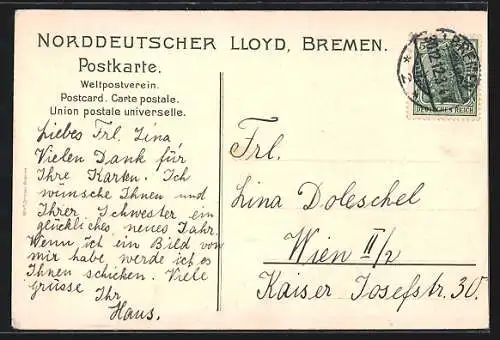 NORDDEUTSCHER LLOYD, BREMEN.
Postkarte.
Weltpostverein.
Postcard. Carte postale.
Union postale universelle.
Liebes Frl. Lina
Vielen Dank für
Ihre Karten. Ich
wünsche Ihnen und
Ihrer Schwester ein
glückliches neues Jahr.
Wenn ich ein Bild von
mir habe, werde ich es
Ihnen schicken. Viele
grüsse Ihr
Hans.
Frl.
Lina Doleschel
Wien II/2
Kaiser Josefstr. 30.
BREMEN
DEUTSCHES REICH